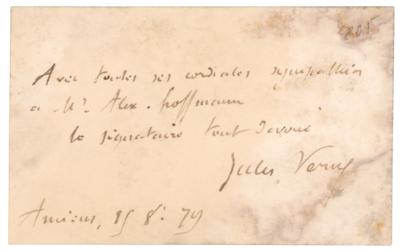 Avec toutes ses cordiales sympathies
a Mr. Alex. Hoffmann
le signataire tout dévoué
Jules Verne
Amiens, 15 8e 79